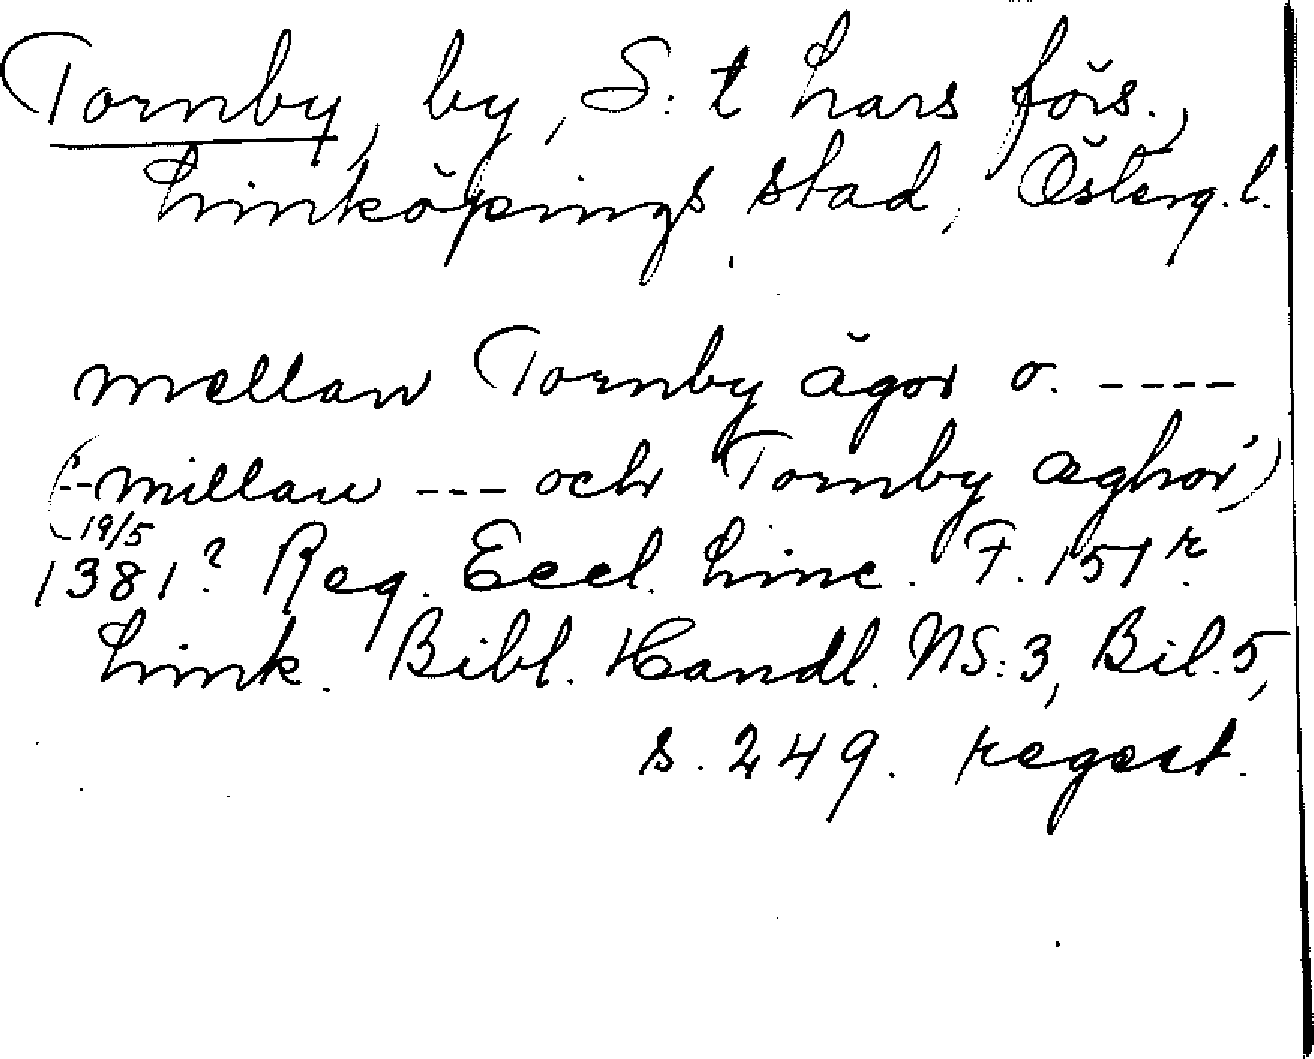 Tornby, by, S:t Lars förs.,
Linköpings stad, Österg. l.
mellan Tornby ägor o. ----
(--millan --- och Tornby æghor)
19/5
1381? Reg. Eccl. Linc. F. 151 r.
Link. Bibl. Handl. NS:3, Bil. 5,
s. 249. regest.